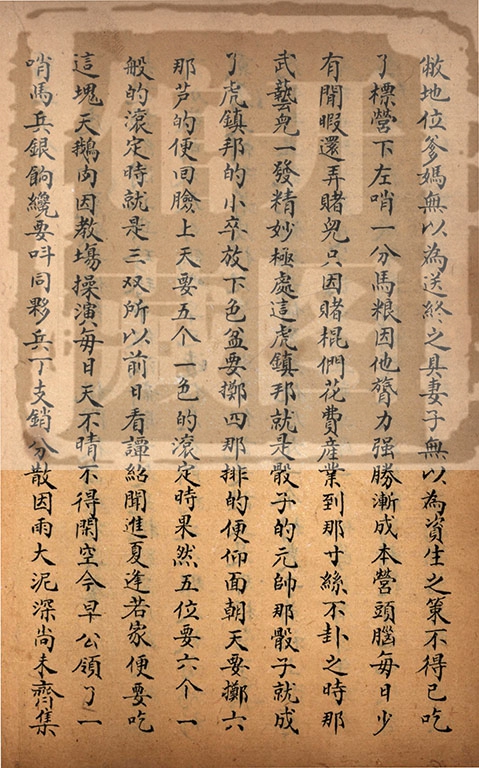 敝地位爹媽無以為送終之具妻子無以為資生之策不得已吃
了標營下左哨一分馬粮因他膂力强勝漸成本營頭腦每日少
有閒暇還弄賭兒只因賭棍們花費産業到那寸絲不卦之時那
武藝兒一發精妙極處這虎鎮邦就是骰子的元帥那骰子就成
了虎鎮邦的小卒放下色盆要擲四那排的便仰面朝天要擲六
那芦的便回臉上天要五个一色的滚定時果然五位要六个一
般的滚定時就是三双所以前日看譚紹聞進夏逢若家便要吃
這塊天鵝肉因教塲操演每日天不晴不得閑空今早公領了一
哨馬兵銀餉纔要呌同夥兵丁支銷分散因雨大泥深尚未齊集